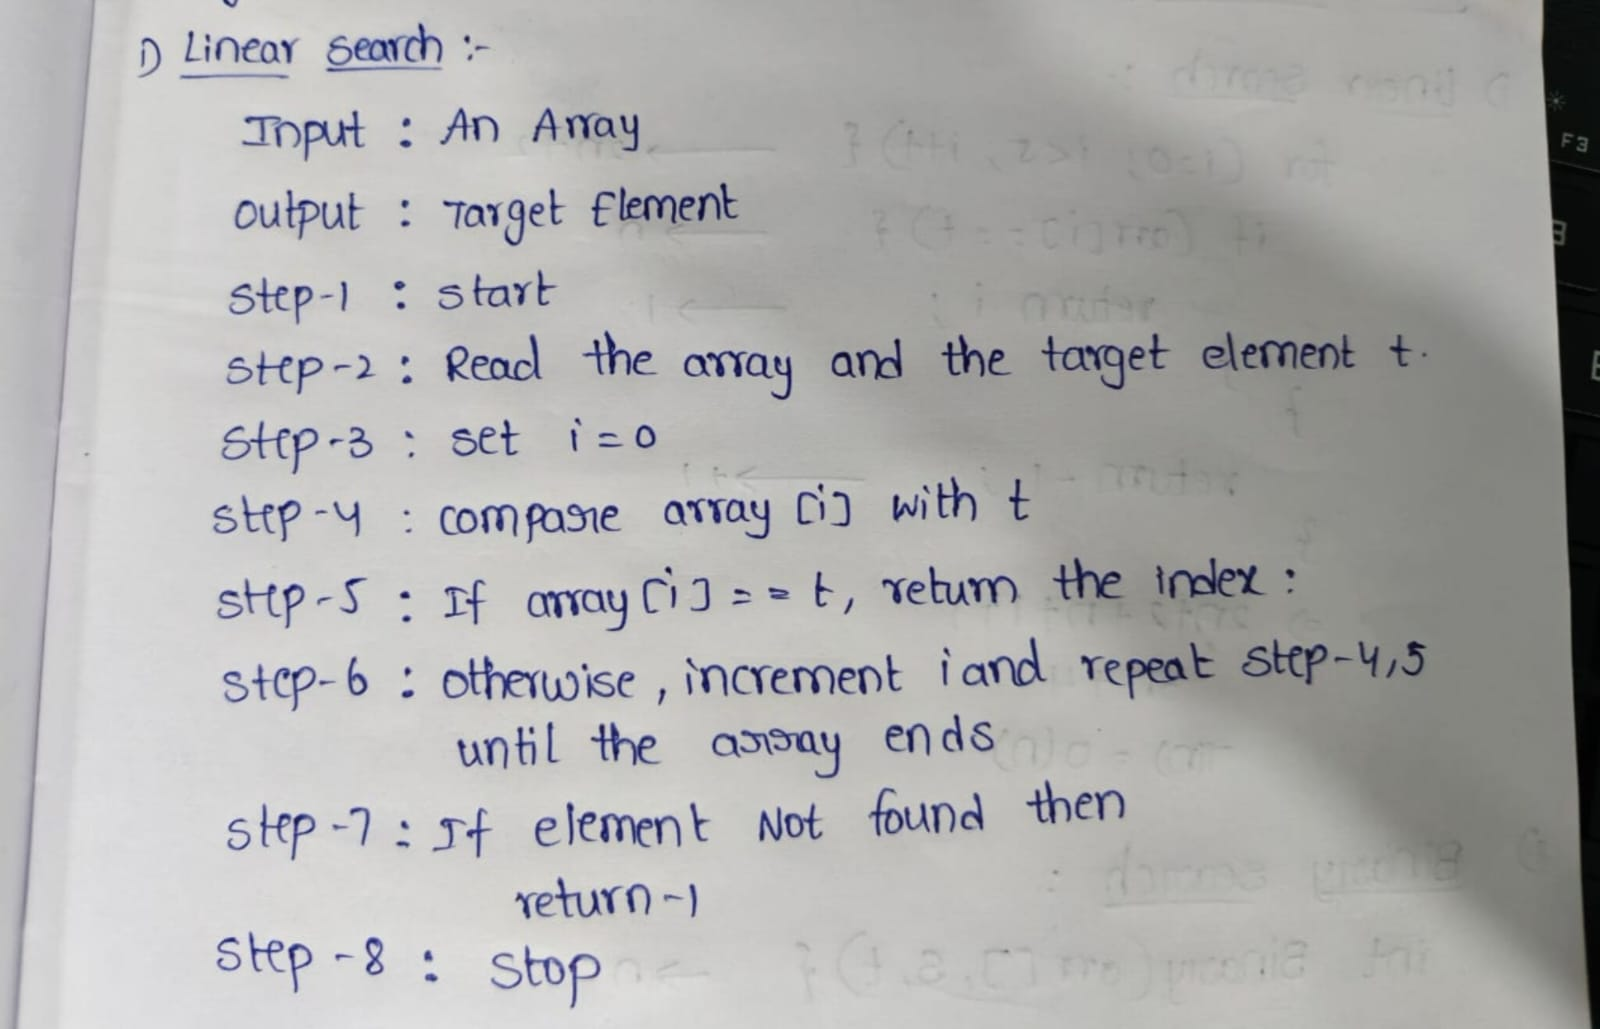 1) Linear Search :-
Input : An Array
output : Target Element
step-1 : start
step-2 : Read the array and the target element t.
step-3 : set i=0
step-4 : compare array [i] with t
step-5 : If array [i] == t, return the index :
step-6 : otherwise, increment i and repeat step-4,5
until the array ends
step-7 : If element Not found then
return -1
step-8 : stop
F3